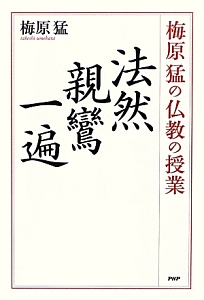 梅原猛の仏教の授業
法然
親鸞
一遍
梅原 猛
takeshi umehara
PHP